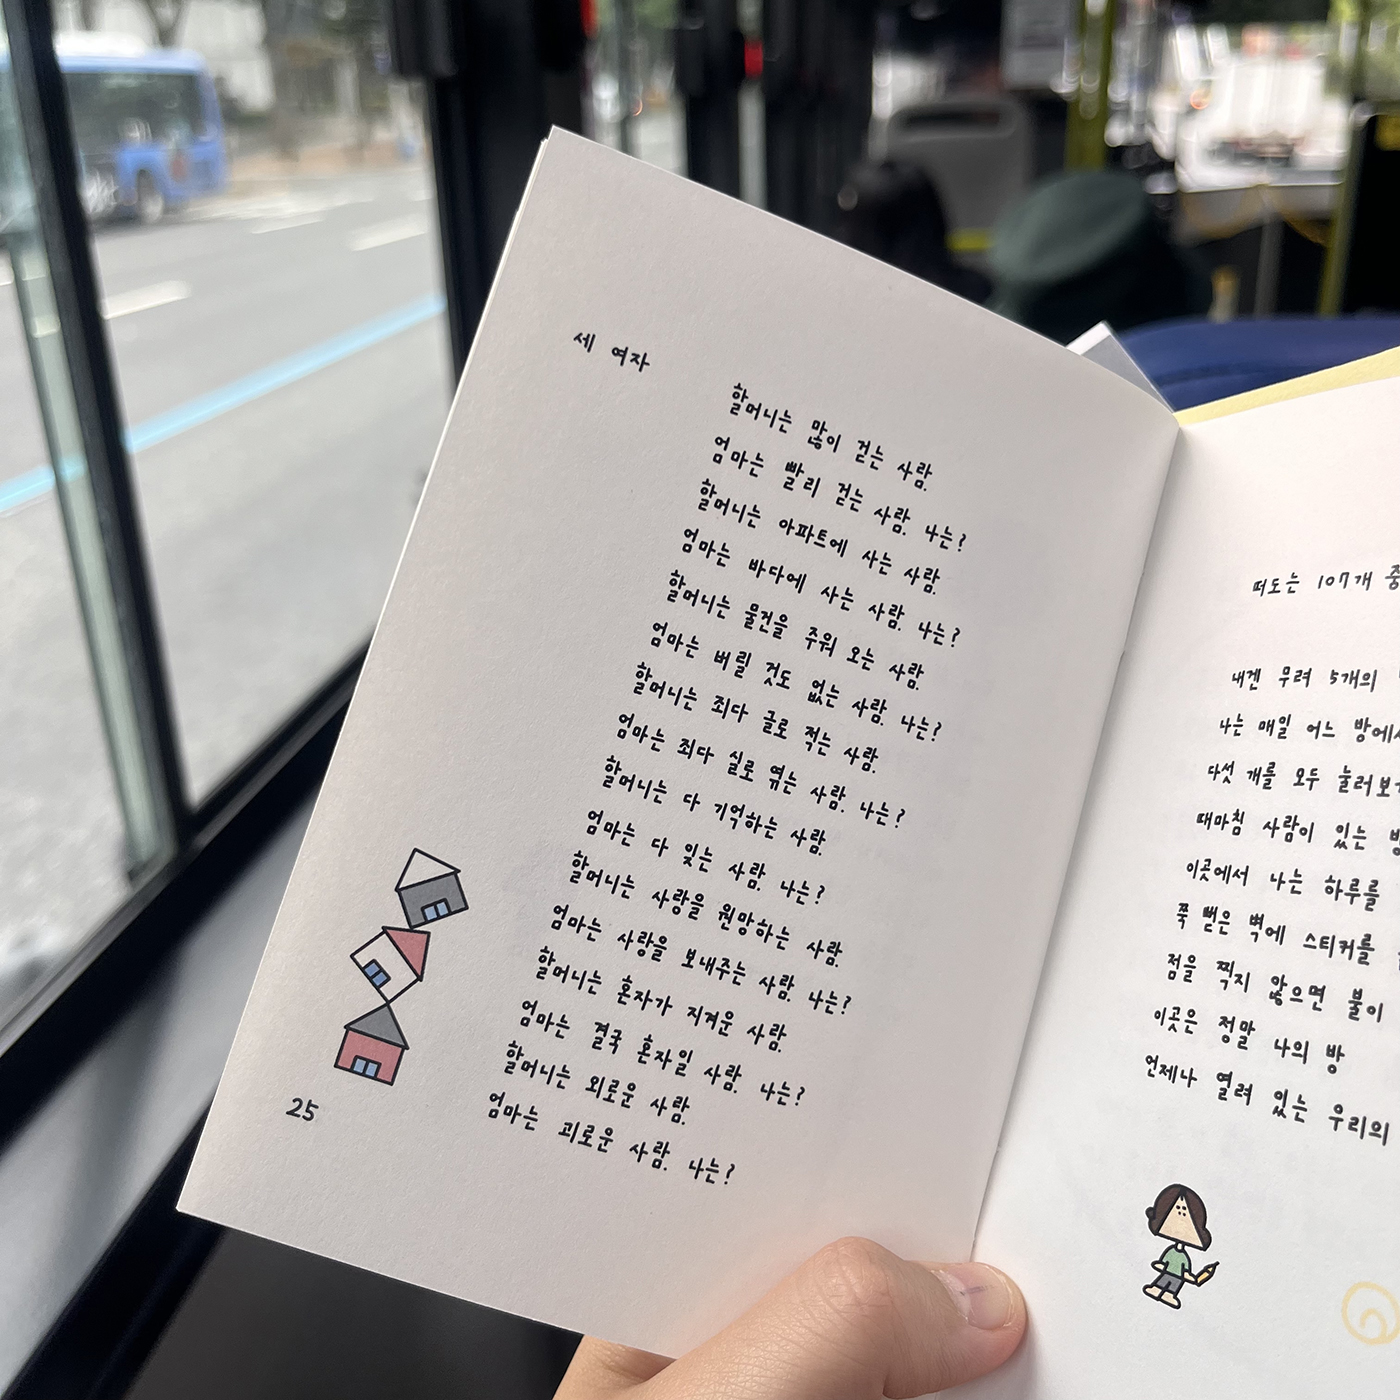 세 여자
할머니는 많이 걷는 사람.
엄마는 빨리 걷는 사람. 나는?
할머니는 아파트에 사는 사람.
엄마는 바다에 사는 사람. 나는?
할머니는 물건을 주워 오는 사람.
엄마는 버릴 것도 없는 사람. 나는?
할머니는 죄다 글로 적는 사람.
엄마는 죄다 실로 엮는 사람. 나는?
할머니는 다 기억하는 사람.
엄마는 다 잊는 사람. 나는?
할머니는 사랑을 원망하는 사람.
엄마는 사랑을 보내주는 사람. 나는?
할머니는 혼자가 지겨운 사람.
엄마는 결국 혼자일 사람. 나는?
할머니는 외로운 사람.
엄마는 괴로운 사람. 나는?
25
떠도는 107개
내겐 무려 5개의
나는 매일 어느
다섯 개를 모두
때마침 사람이 있는
이곳에서 나는 하루를
쭉 뻗은 벽에 스티커를
점을 찍지 않으면 불이
이곳은 정말 나의 방
언제나 열려 있는 우리의